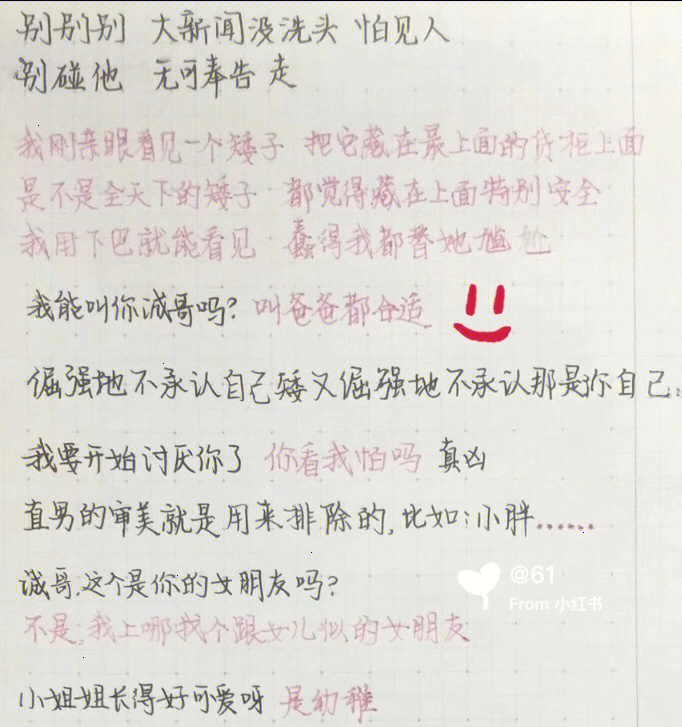 别别别 大新闻没洗头 怕见人
别碰他 无可奉告 走
我刚亲眼看见一个矮子 把它藏在最上面的货柜上面
是不是全天下的矮子 都觉得藏在上面特别安全
我用下巴就能看见 蠢得我都替她尴尬
我能叫你诚哥吗? 叫爸爸都合适
倔强地不承认自己矮又倔强地不承认那是你自己.
我要开始讨厌你了 你看我怕吗 真凶
直男的审美就是用来排除的,比如:小胖......
诚哥,这个是你的女朋友吗?
不是,我上哪找个跟女儿似的女朋友
小姐姐长得好可爱呀 是幼稚
@61
From 小红书